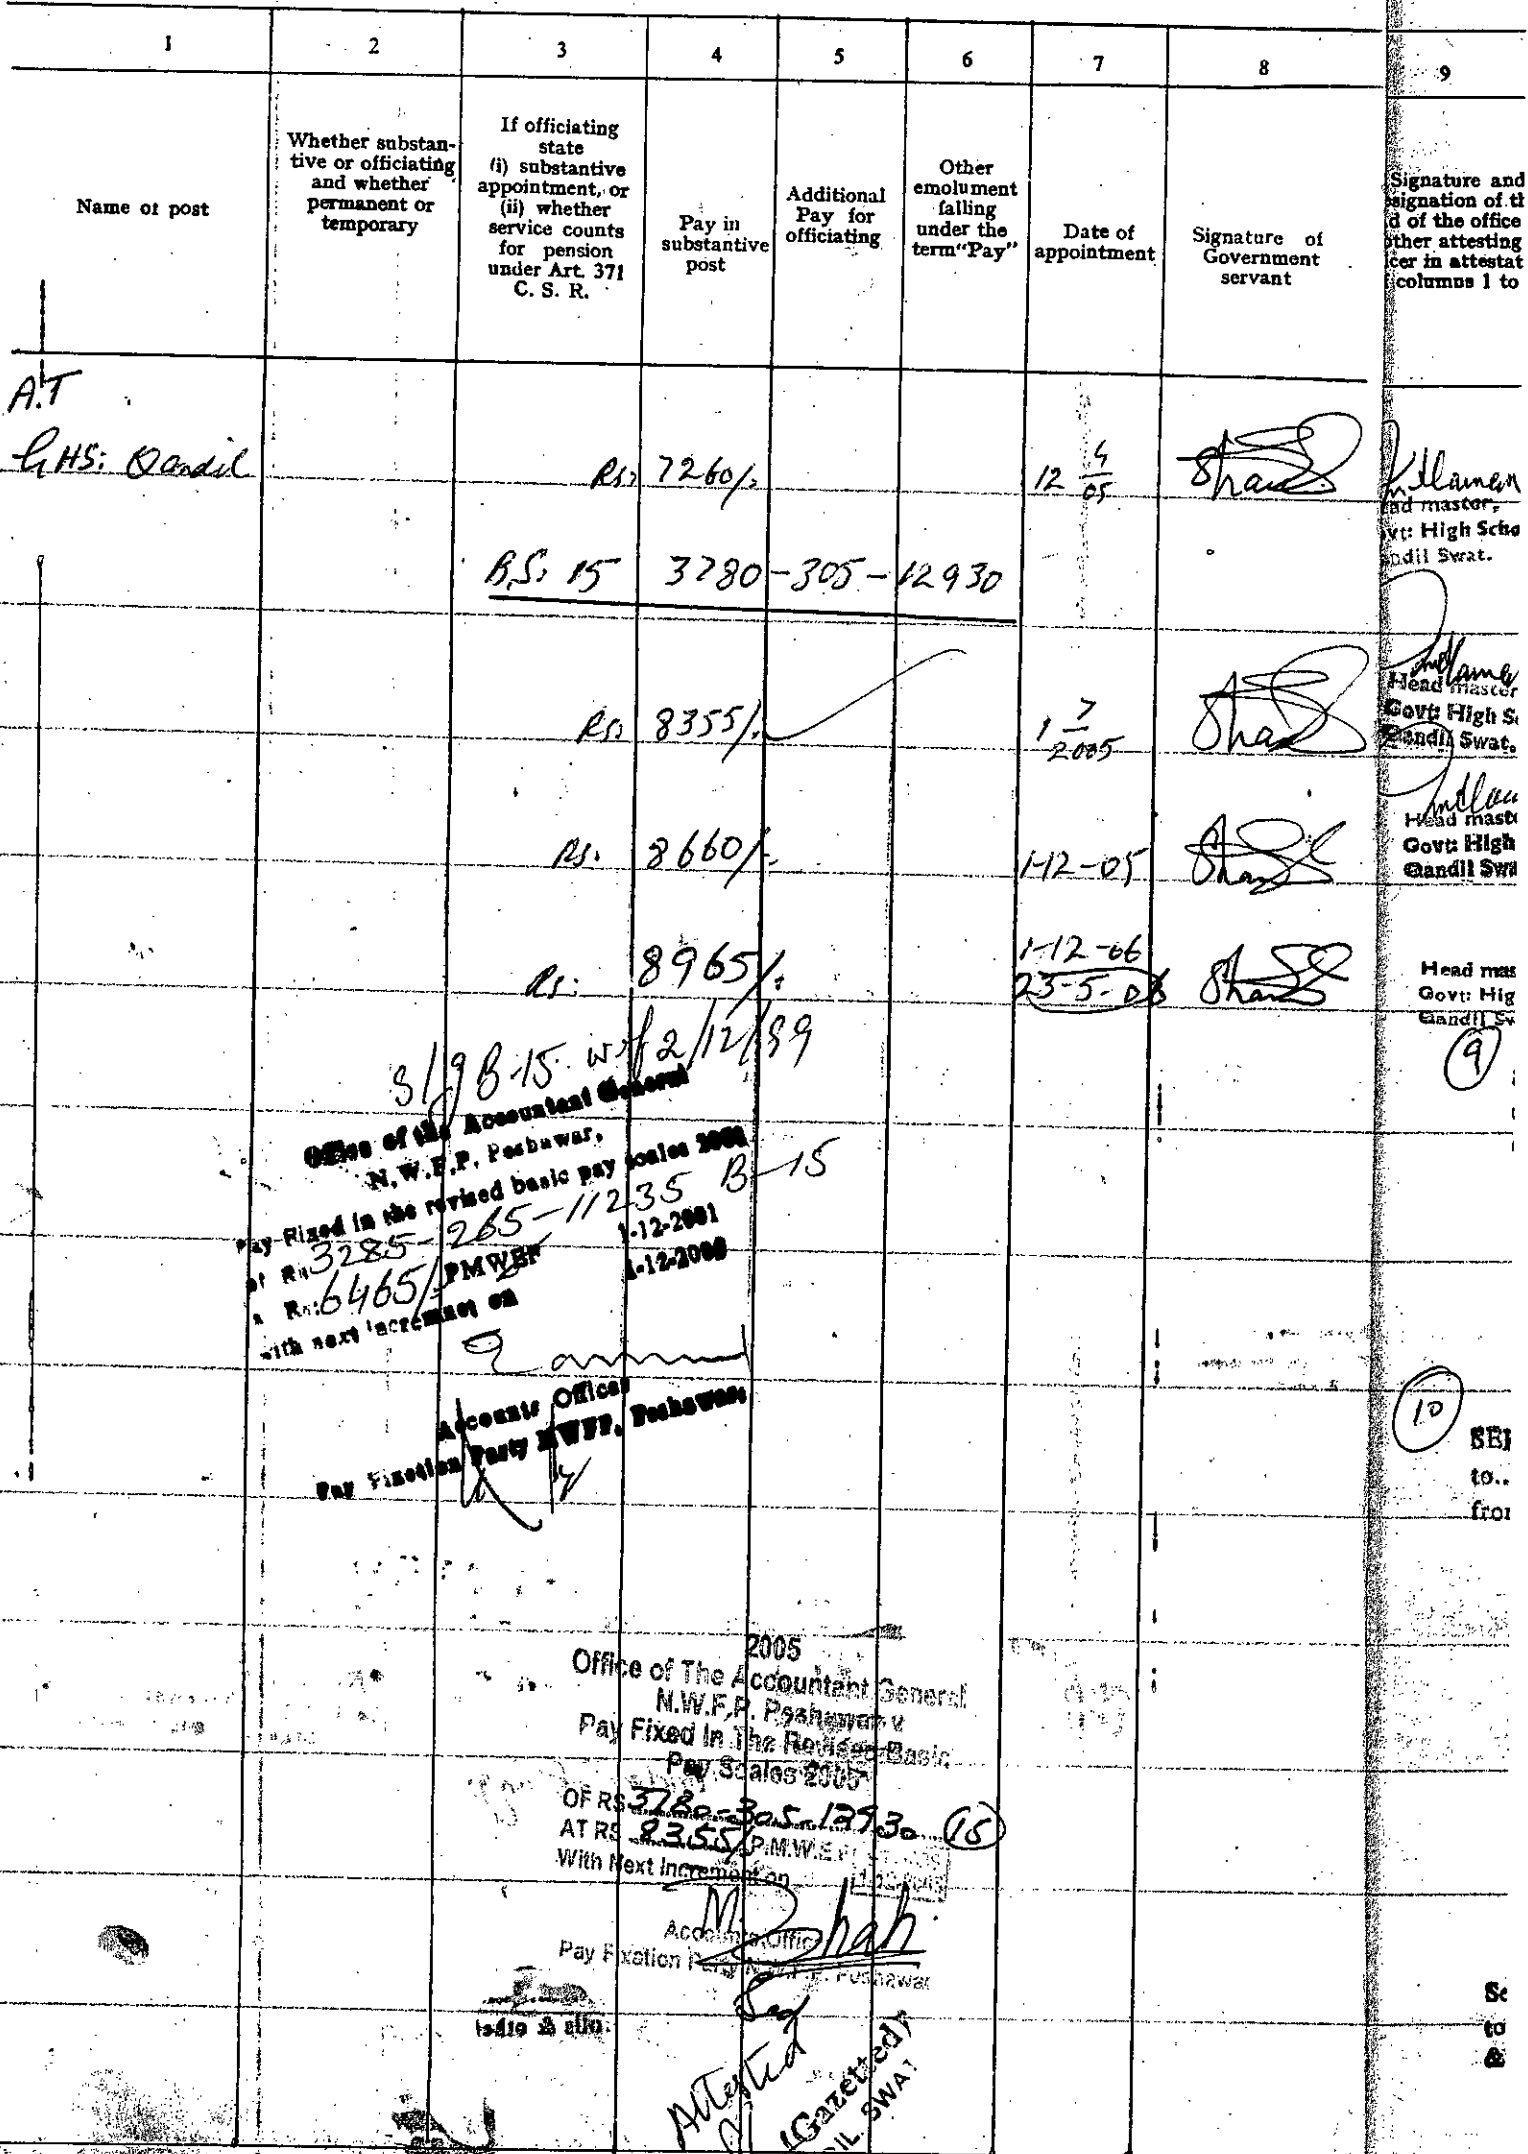 1 2 3 4 5 6 7 8 9
Name of post
Whether substan-
tive or officiating
and whether
permanent or
temporary
If officiating
state
(i) substantive
appointment, or
(ii) whether
service counts
for pension
under Art. 371
C. S. R.
Pay in
substantive
post
Additional
Pay for
officiating
Other
emolument
falling
under the
term "Pay"
Date of
appointment
Signature of
Government
servant
Signature and
signation of th
d of the office
other attesting
cer in attestat
columns 1 to
A.T
GHS: Qandil Rs: 7260/- 12 4/05
ad master,
vt: High Scho
ndil Swat.
B.S: 15 3780-305-12930
Rs: 8355/- 1 7/2005
Head master
Govt: High S
Qandil Swat.
Rs. 8660/- 1-12-05
Head maste
Govt: High
Qandil Swa
Rs: 8965/- 1-12-06
23-5-06
Head mas
Govt: Hig
Qandil Sw
9
S/g B-15 w.e.f 2/12/99
Office of the Accountant General
N.W.F.P. Peshawar.
Pay Fixed in the revised basic pay scales 2001
of Rs: 3285-265-11235 B-15
a Rs: 6465/- PMWEF 1-12-2001
with next increment on 1-12-2002
Accounts Officer
Pay Fixation Party NWFP, Peshawar
10
SE
to..
from
2005
Office of The Accountant General
N.W.F.P. Peshawar
Pay Fixed In The Revised Basic
Pay Scales 2005
OF RS 3780-305-12930 15
AT RS 8355/- P.M.W.E.F
With Next Increment on
M. Shah
Accounts Office
Pay Fixation Party N.W.F.P. Peshawar
Attested
(Gazetted)
DIL. SWAT
Se
to
&